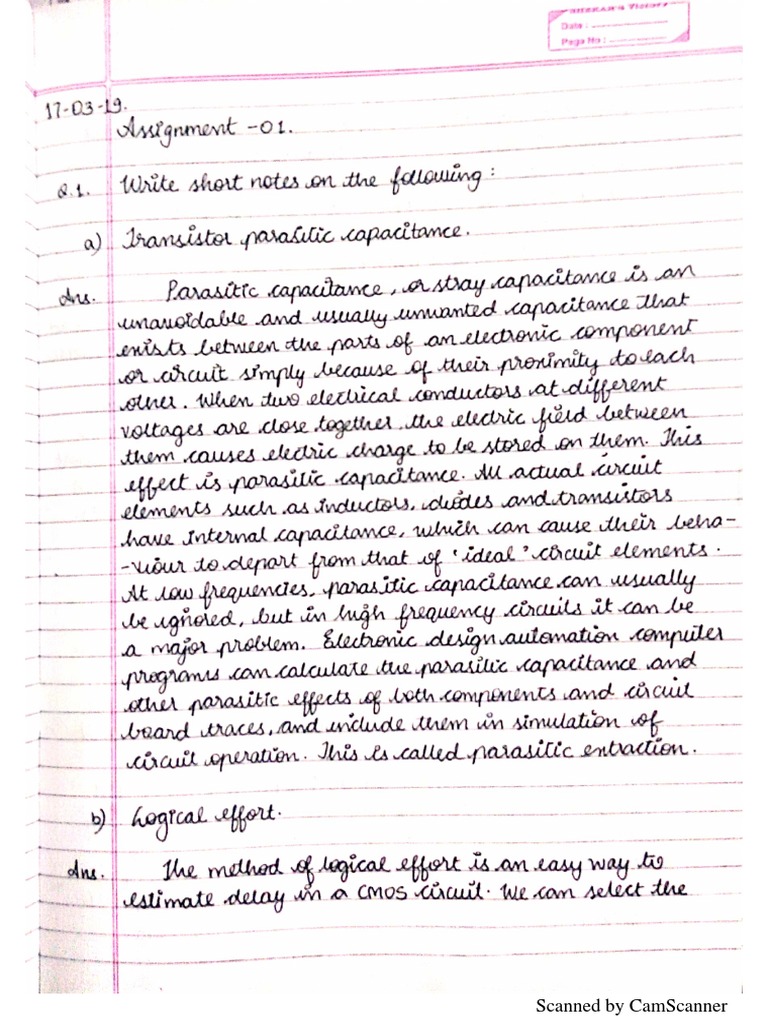 Date :
Page No :
17-03-19.
Assignment -01.
Q.1. Write short notes on the following :
a) Transistor parasitic capacitance.
Ans. Parasitic capacitance, or stray capacitance is an
unavoidable and usually unwanted capacitance that
exists between the parts of an electronic component
or circuit simply because of their proximity to each
other. When two electrical conductors at different
voltages are close together the electric field between
them causes electric charge to be stored on them. This
effect is parasitic capacitance. All actual circuit
elements such as inductors, diodes and transistors
have internal capacitance, which can cause their beha-
-viour to depart from that of 'ideal' circuit elements.
At low frequencies, parasitic capacitance can usually
be ignored, but in high frequency circuits it can be
a major problem. Electronic design automation computer
programs can calculate the parasitic capacitance and
other parasitic effects of both components and circuit
board traces, and include them in simulation of
circuit operation. This is called parasitic extraction.
b) Logical effort.
Ans. The method of logical effort is an easy way to
estimate delay in a CMOS circuit. We can select the
Scanned by CamScanner